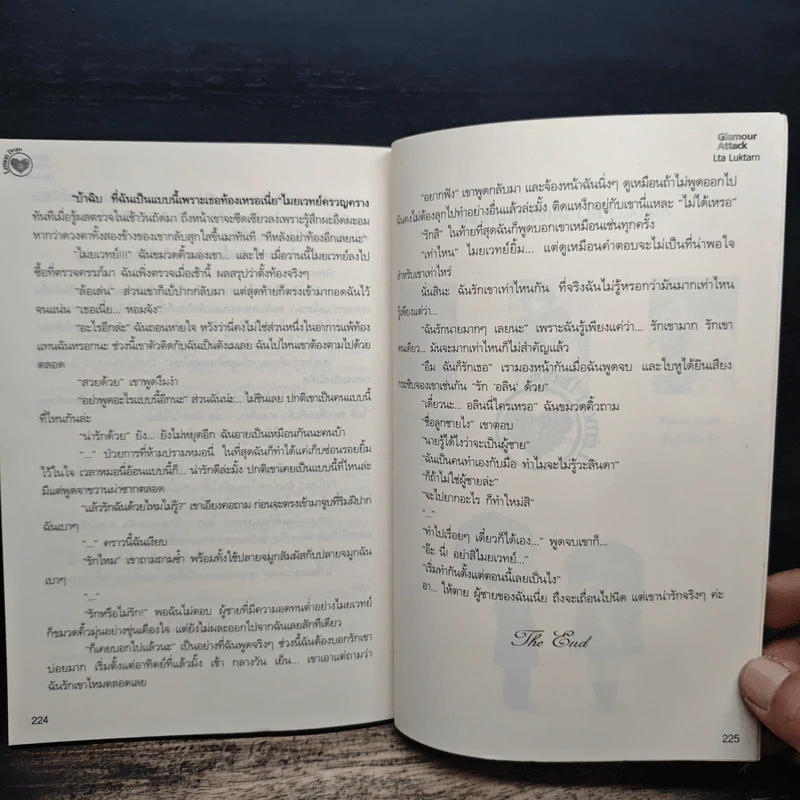 Lemon Drops
"บ้าฉิบ ที่ฉันเป็นแบบนี้เพราะเธอท้องเหรอเนี่ย" ไมยเวทย์ครวญคราง
ทันทีเมื่อรู้ผลตรวจในเช้าวันถัดมา ถึงหน้าเขาจะซีดเซียวลงเพราะรู้สึกผะอืดผะอม
หากว่าดวงตาทั้งสองข้างของเขากลับสุกใสขึ้นมาทันที "ทีหลังอย่าท้องอีกเลยนะ"
"ไมยเวทย์!!!" ฉันขมวดคิ้วมองเขา... และใช่ เมื่อวานนี้ไมยเวทย์ลงไป
ซื้อที่ตรวจครรภ์มา ฉันเพิ่งตรวจเมื่อเช้านี้ ผลสรุปว่าตั้งท้องจริงๆ
"ล้อเล่น" ส่วนเขาก็เบ้ปากกลับมา แต่สุดท้ายก็ตรงเข้ามากอดฉันไว้
จนแน่น "เธอเนี่ย... หอมจัง"
"อะไรอีกล่ะ" ฉันถอนหายใจ หวังว่านี่คงไม่ใช่ส่วนหนึ่งในอาการแพ้ท้อง
แทนฉันหรอกนะ ช่วงนี้เขาตัวติดกับฉันเป็นตังเมเลย ฉันไปไหนเขาต้องตามไปด้วย
ตลอด
"สวยด้วย" เขาพูดงึมงำ
"อย่าพูดอะไรแบบนี้อีกนะ" ส่วนฉันน่ะ... ไม่ชินเลย ปกติเขาเป็นคนแบบนี้
ที่ไหนกันล่ะ
"น่ารักด้วย" ยัง... ยังไม่หยุดอีก ฉันอายเป็นเหมือนกันนะคนบ้า
"..." ป่วยการที่ห้ามปรามหมอนี่ ในที่สุดฉันก็ทำได้แค่เก็บซ่อนรอยยิ้ม
ไว้ในใจ เวลาหมอนี่อ้อนแบบนี้ก็... น่ารักดีล่ะมั้ง ปกติเขาเคยเป็นแบบนี้ที่ไหนล่ะ
มีแต่พูดจาขวานผ่าซากตลอด
"แล้วรักฉันด้วยไหมไม่รู้?" เขาเอียงคอถาม ก่อนจะตรงเข้ามาจูบที่ริมฝีปาก
ฉันเบาๆ
"..." คราวนี้ฉันเงียบ
"รักไหม" เขาถามถามซ้ำ พร้อมทั้งใช้ปลายจมูกสัมผัสกับปลายจมูกฉัน
เบาๆ
"..."
"รักหรือไม่รัก!" พอฉันไม่ตอบ ผู้ชายที่มีความอดทนต่ำอย่างไมยเวทย์
ก็ขมวดคิ้วมุ่นอย่างขุ่นเคืองใจ แต่ยังไม่ผละออกไปจากฉันเลยสักทีเดียว
"ก็เคยบอกไปแล้วนะ" เป็นอย่างที่ฉันพูดจริงๆ ช่วงนี้ฉันต้องบอกรักเขา
บ่อยมาก เริ่มตั้งแต่อาทิตย์ที่แล้วมั้ง เช้า กลางวัน เย็น... เขาเอาแต่ถามว่า
ฉันรักเขาไหมตลอดเลย
224
Glamour
Attack
Lta Luktarn
"อยากฟัง" เขาพูดกลับมา และจ้องหน้าฉันนิ่งๆ ดูเหมือนถ้าไม่พูดออกไป
ฉันคงไม่ต้องลุกไปทำอย่างอื่นแล้วล่ะมั้ง ติดแหง็กอยู่กับเขานี่แหละ "ไม่ได้เหรอ"
"รักสิ" ในท้ายที่สุดฉันก็พูดบอกเขาเหมือนเช่นทุกครั้ง
"เท่าไหน" ไมยเวทย์ยิ้ม... แต่ดูเหมือนคำตอบจะไม่เป็นที่น่าพอใจ
สำหรับเขาเท่าไหร่
นั่นสินะ ฉันรักเขาเท่าไหนกัน ที่จริงฉันไม่รู้หรอกว่ามันมากเท่าไหน
รู้เพียงแต่ว่า...
"ฉันรักนายมากๆ เลยนะ" เพราะฉันรู้เพียงแค่ว่า... รักเขามาก รักเขา
คนเดียว... มันจะมากเท่าไหนก็ไม่สำคัญแล้ว
"อืม ฉันก็รักเธอ" เรามองหน้ากันเมื่อฉันพูดจบ และใบหูได้ยินเสียง
กระซิบจองเขาเช่นกัน "รัก 'อลิน' ด้วย"
"เดี๋ยวนะ... อลินนี่ใครเหรอ" ฉันขมวดคิ้วถาม
"ชื่อลูกชายไง" เขาตอบ
"นายรู้ได้ไงว่าจะเป็นผู้ชาย"
"ฉันเป็นคนทำเองกับมือ ทำไมจะไม่รู้วะลินดา"
"ก็ถ้าไม่ใช่ผู้ชายล่ะ"
"จะไปยากอะไร ก็ทำใหม่สิ"
"..."
"ทำไปเรื่อยๆ เดี๋ยวก็ได้เอง..." พูดจบเขาก็...
"อ๊ะ นี่ อย่าสิไมยเวทย์..."
"เริ่มทำกันตั้งแต่ตอนนี้เลยเป็นไง"
อา... ให้ตาย ผู้ชายของฉันเนี่ย ถึงจะเถื่อนไปนิด แต่เขาน่ารักจริงๆ ค่ะ
The End
225